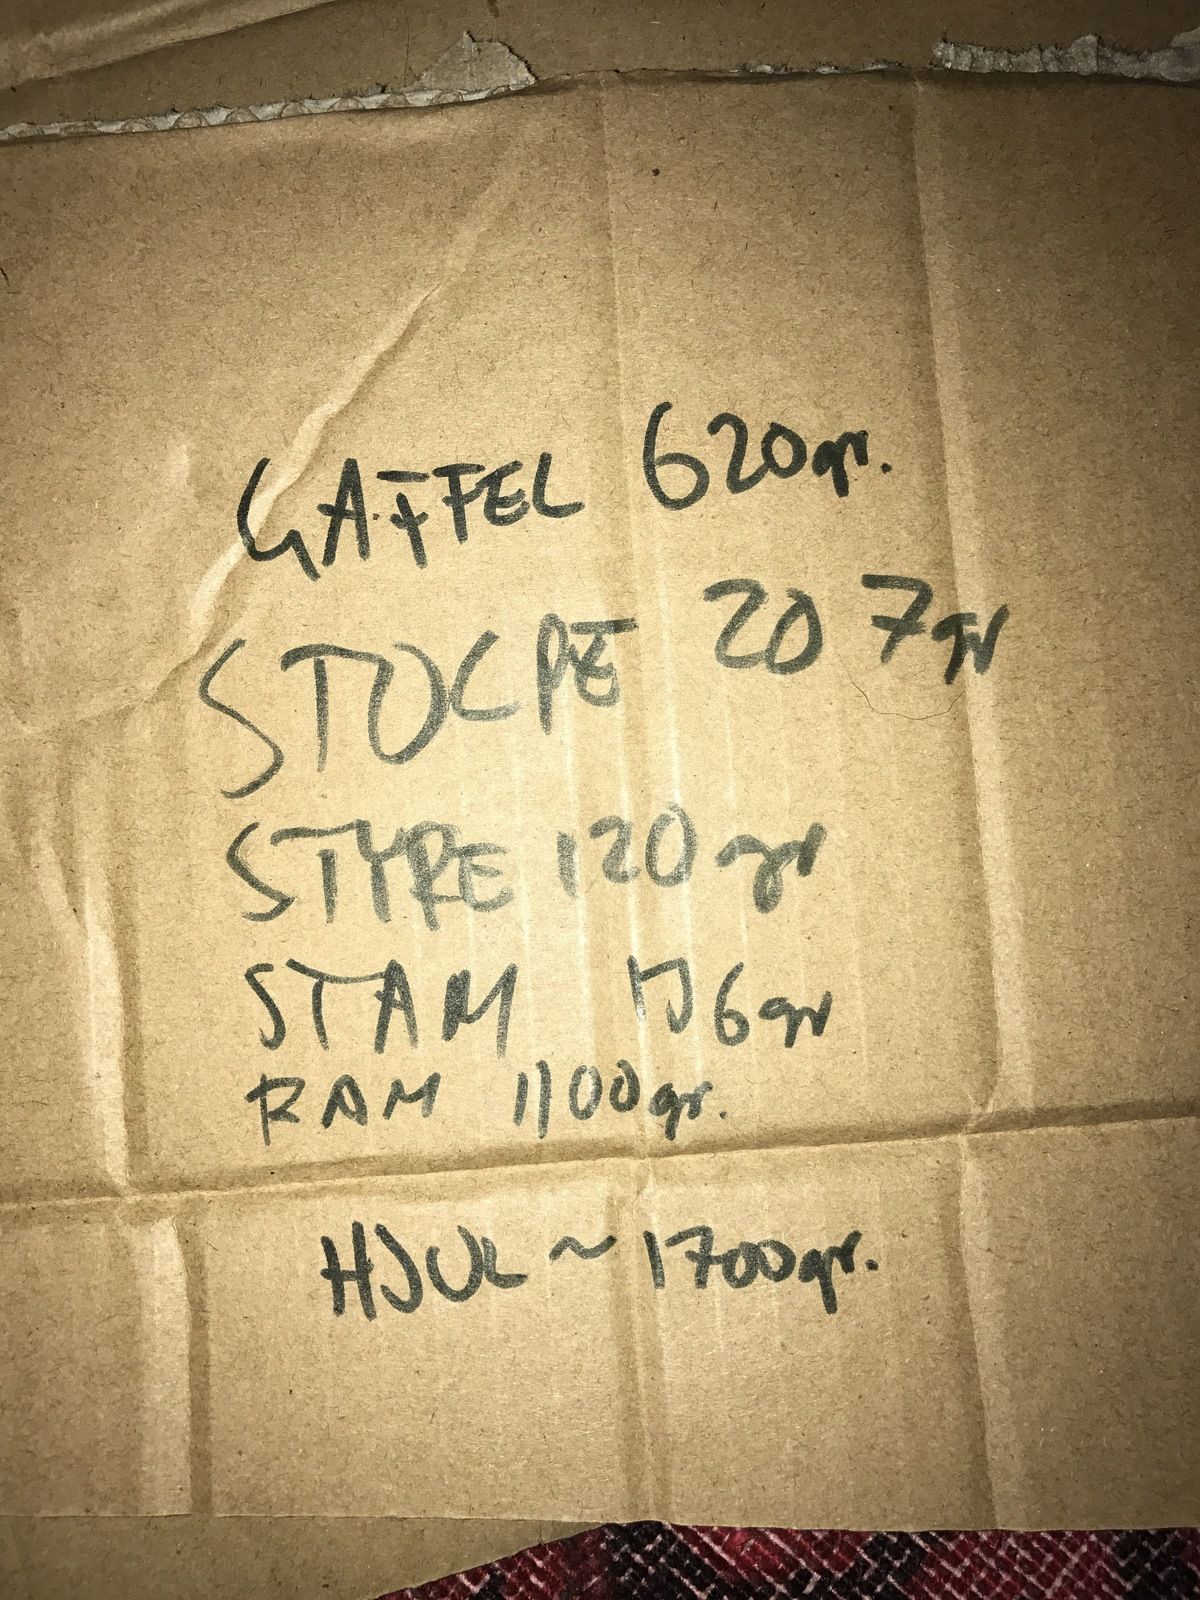 GAFFEL 620gr.
STOLPE 207gr
STYRE 120gr
STAM 6gr
RAM 1100gr.
HJUL ~ 1700gr.